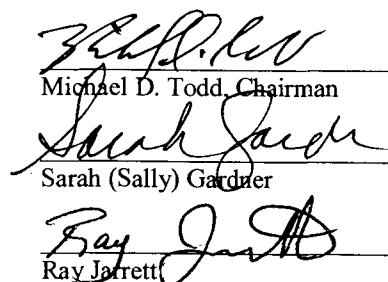 Michael D. Todd, Chairman
Sarah Gardner
Sarah (Sally) Gardner
Ray Jarrett
Ray Jarrett